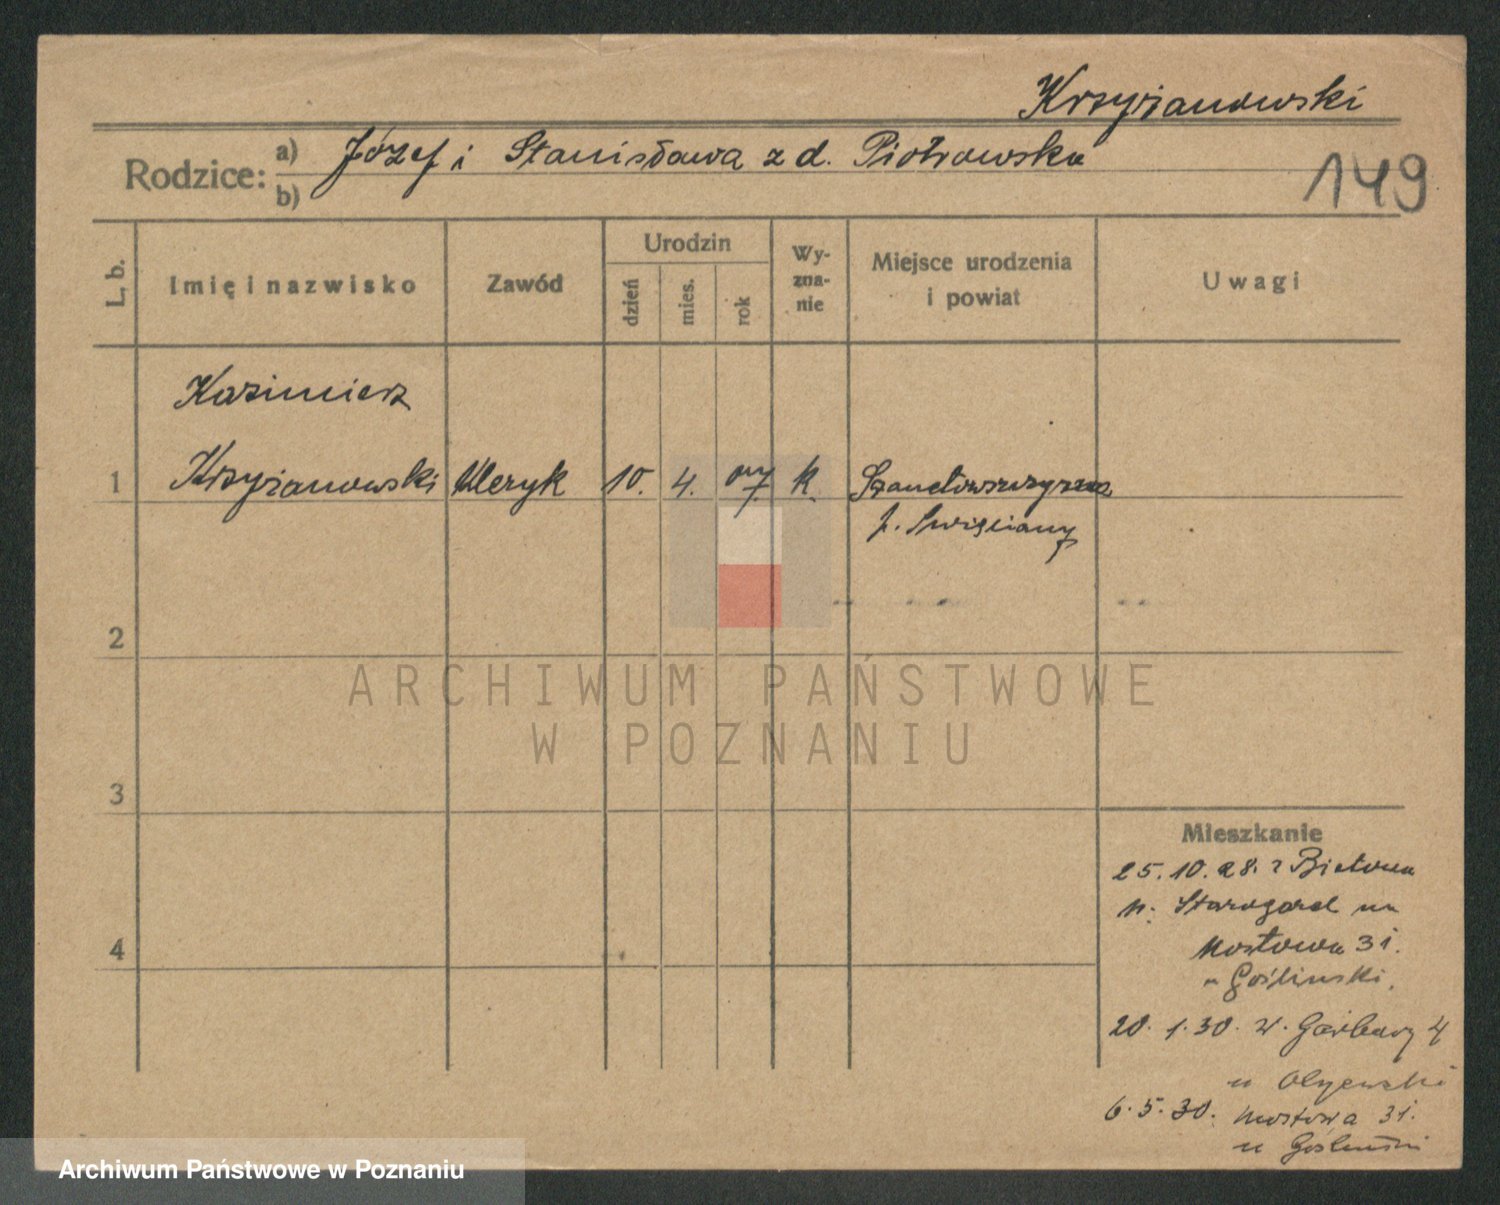 Krzyżanowski
Rodzice: a) Józef i Stanisława z d. Piotrowska
b)
149
L. b.
Imię i nazwisko
Zawód
Urodzin
dzień
mies.
rok
Wy-
zna-
nie
Miejsce urodzenia
i powiat
Uwagi
Kazimierz
1 Krzyżanowski Kleryk 10. 4. 07 k.
p. Święciany
2
3
4
Mieszkanie
25.10.28. z Bietowa
p. Starogard na
Mostowa 31.
u Gośliński.
20.1.30. W. Garbary 4
u Olszewski
6.5.30. Mostowa 31.
u Gośliński
ARCHIWUM PAŃSTWOWE
W POZNANIU
Archiwum Państwowe w Poznaniu